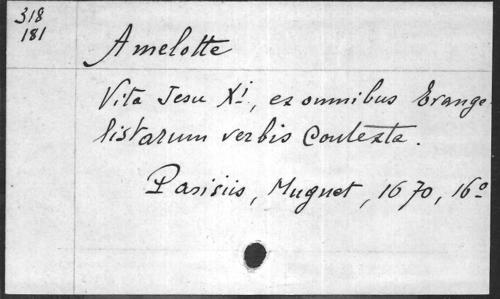 318
181
Amelotte
Vita Jesu Xi, ex omnibus Evange
listarum verbis contexta.
Parisiis, Muguet, 1670, 16º